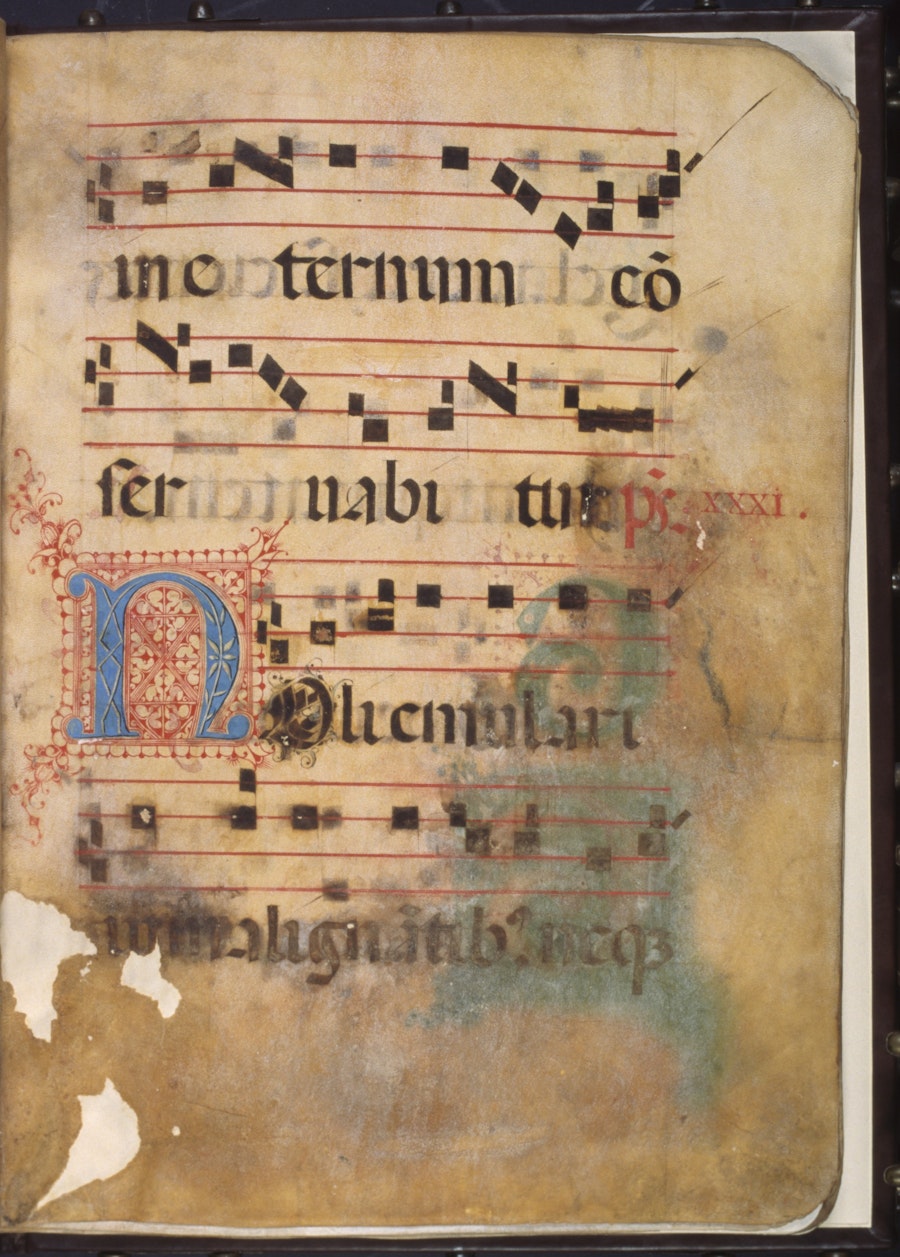 in e ternum cō
ser uabi tur ps̄. xxxi.
NOli emulari
in malignātib᷒. neqꝫ